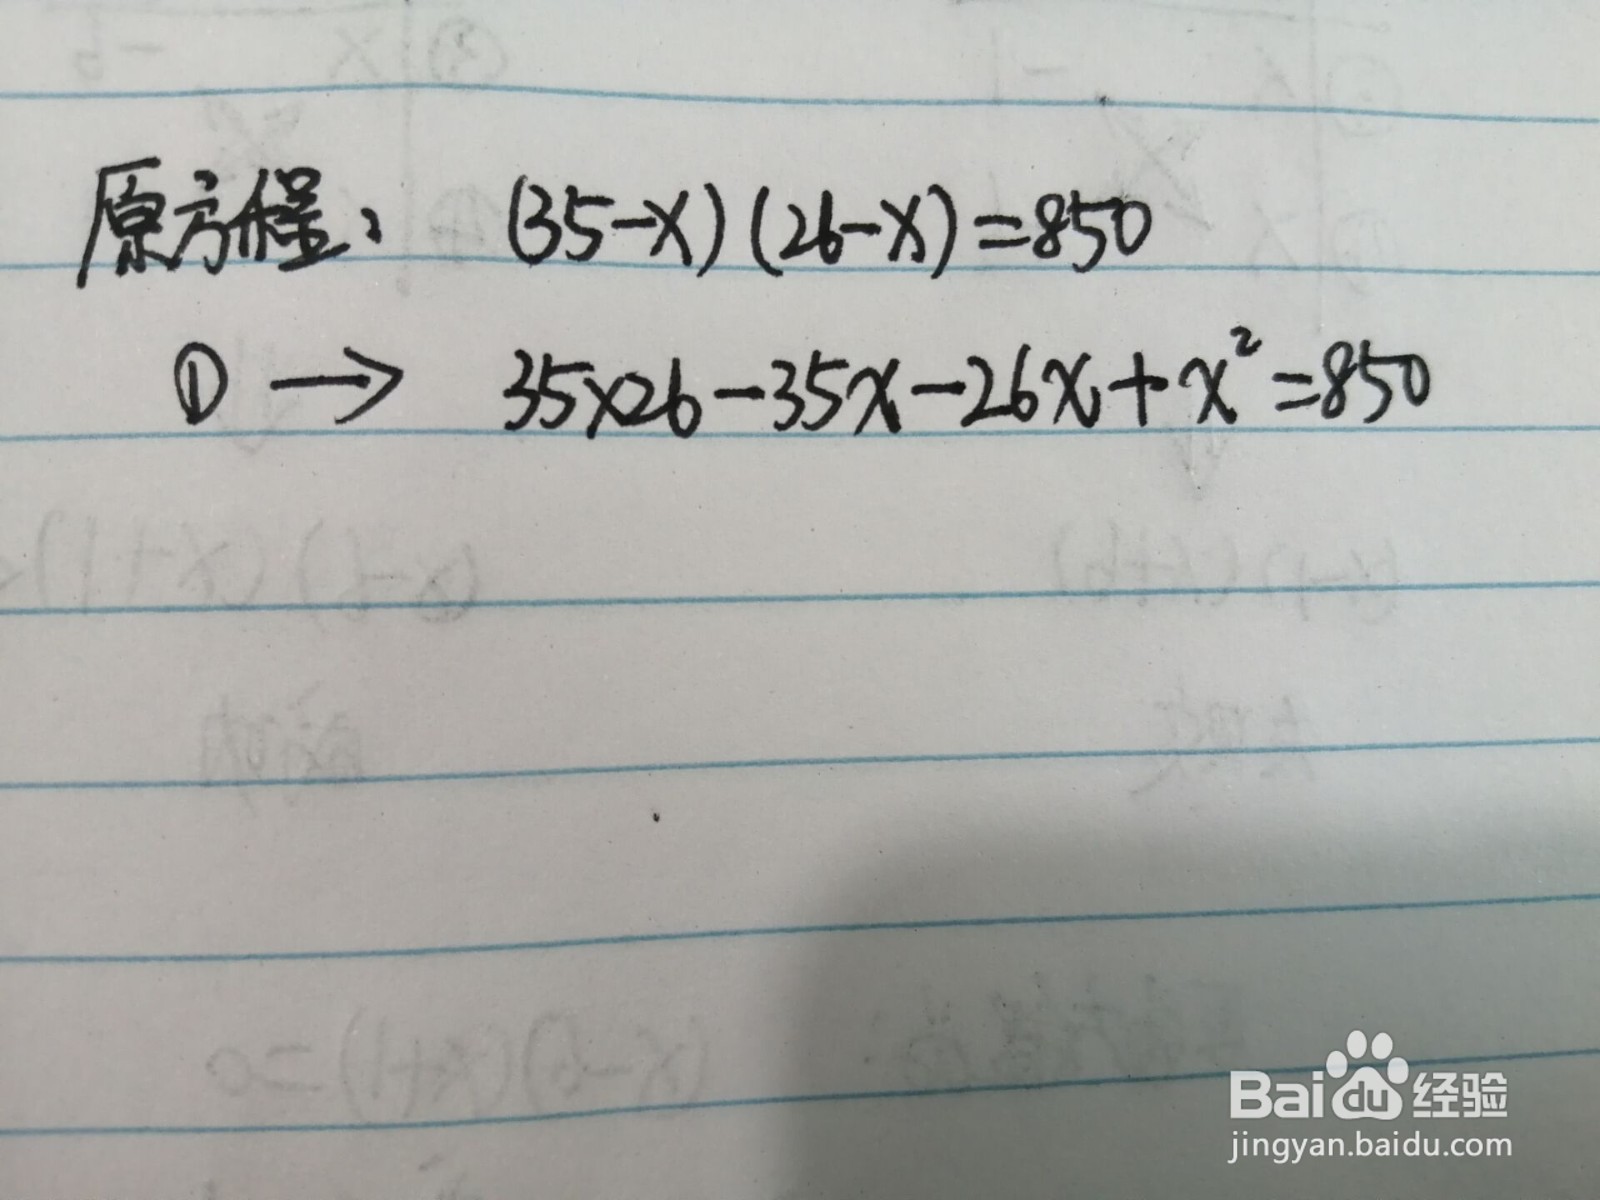 原方程: (35-x)(26-x)=850
① → 35×26-35x-26x+x²=850
Baidu经验
jingyan.baidu.com